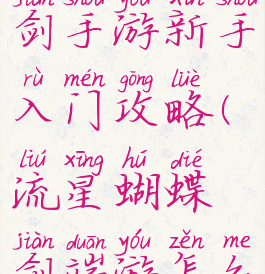 jiàn shǒu yóu xīn shǒu
剑手游新手
rù mén gōng lüè
入门攻略(
liú xīng hú dié
流星蝴蝶
jiàn duān yóu zěn me
剑端游怎么